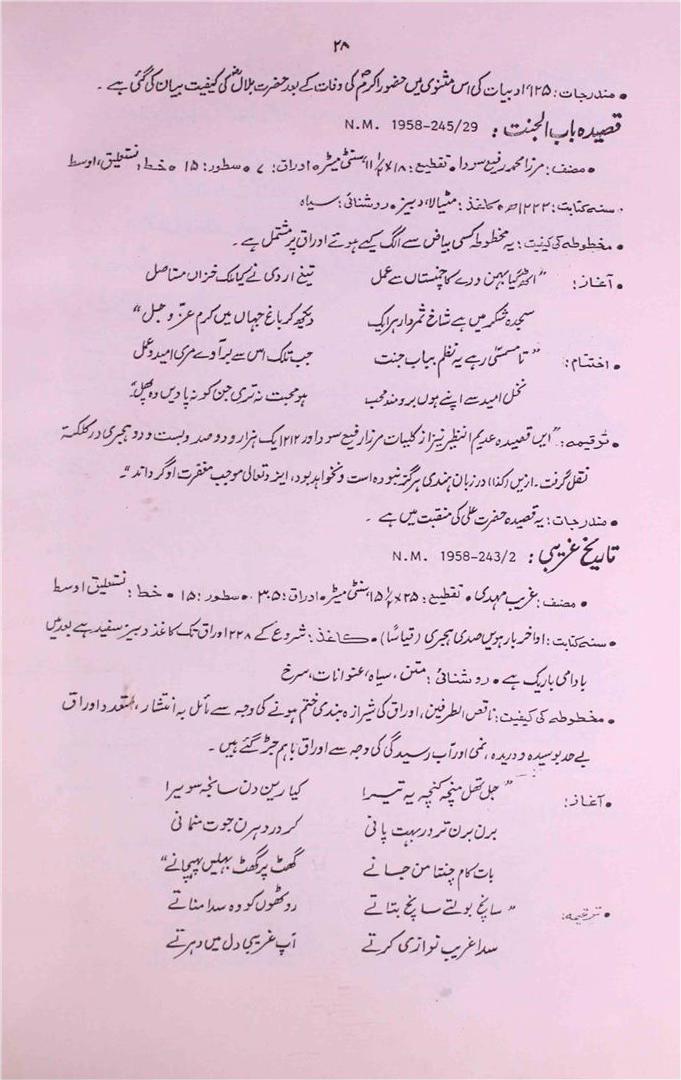 ۲۸
• مندرجات: ۱۲۵ ابیات کی اس مثنوی میں حضور اکرمؐ کی وفات کے بعد حضرت بلالؓ کی کیفیت بیان کی گئی ہے ۔
قصیدہ باب الجنت : N.M. 1958-245/29
• مصنف: مرزا محمد رفیع سودا • تقطیع: ۱۸×۱۱½ سنٹی میٹر • اوراق: ۷ • سطور: ۱۵ • خط: نستعلیق، اوسط
• سنہ کتابت: ۱۲۲۲ھ • کاغذ: مٹیالا، دبیز • روشنائی: سیاہ
• مخطوطہ کی کیفیت: یہ مخطوطہ کسی بیاض سے الگ کیے ہوئے اوراق پر مشتمل ہے ۔
• آغاز: "اٹھ گیا بہمن و دے کا چمنستاں سے عمل تیغ اردی نے کیا ملک خزاں مستاصل
سجدہ شکر میں ہے شاخ ثمردار ہر ایک دیکھ کر باغ جہاں میں کرم عزّ و جل"
• اختتام: "تا مسمّی رہے یہ نظم بباب جنت جب تلک اس سے بر آوے مری امید و عمل
نخل امید سے اپنے ہوں برومند محب ہو محبت نہ تری جن کو نہ پاویں وہ پھل"
• ترقیمہ: "ایں قصیدہ عدیم النظیر نیز از کلیات مرزا رفیع سودا ور ۱۲۱۲ ایک ہزار و دو صد و بست و دو ہجری در کلکتہ
نقل گرفت ۔ ازیں (کذا) در زبان ہندی ہرگز نبودہ است و نخواہد بود، ایزد تعالی موجب مغفرت او گرداند"۔
• مندرجات: یہ قصیدہ حضرت علی کی منقبت میں ہے ۔
تاریخ غریبی : N.M. 1958-243/2
• مصنف: غریب مہدی • تقطیع: ۲۵×۱۵½ سنٹی میٹر • اوراق: ۳۰۵ • سطور: ۱۵ • خط: نستعلیق اوسط
• سنہ کتابت: اواخر بارہویں صدی ہجری (قیاسًا) • کاغذ: شروع کے ۲۲۸ اوراق تک کاغذ دبیز سفید ہے بعد میں
بادامی باریک ہے • روشنائی: متن، سیاہ، عنوانات، سرخ
• مخطوطہ کی کیفیت: ناقص الطرفین، اوراق کی شیرازہ بندی ختم ہونے کی وجہ سے مائل بہ انتشار، متعدد اوراق
بے حد بوسیدہ و دریدہ، نمی اور آب رسیدگی کی وجہ سے اوراق باہم جڑ گئے ہیں ۔
• آغاز: "جل تھل منچہ کنچہ یہ تیرا کیا رین دن سانجہ سویرا
برن برن تر ور بہت پانی کر دردہرن جوت
بات کام چنتا من جانے گھٹ پر گھٹ پہچانے"
• ترقیمہ: "سانچ بولتے سانچ بتاتے روٹھوں کو وہ سدا مناتے
سدا غریب نوازی کرتے آپ غریبی دل میں دہرتے